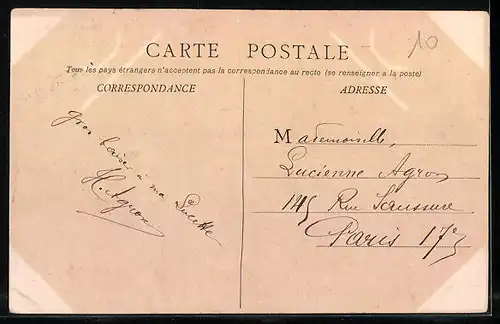 10
CARTE POSTALE
Tous les pays étrangers n'acceptent pas la correspondance au recto (se renseigner à la poste)
CORRESPONDANCE
ADRESSE
Gros baiser à ma Lucette
H. Agron
Mademoiselle,
Lucienne Agron
145 Rue Saussure
Paris 17e